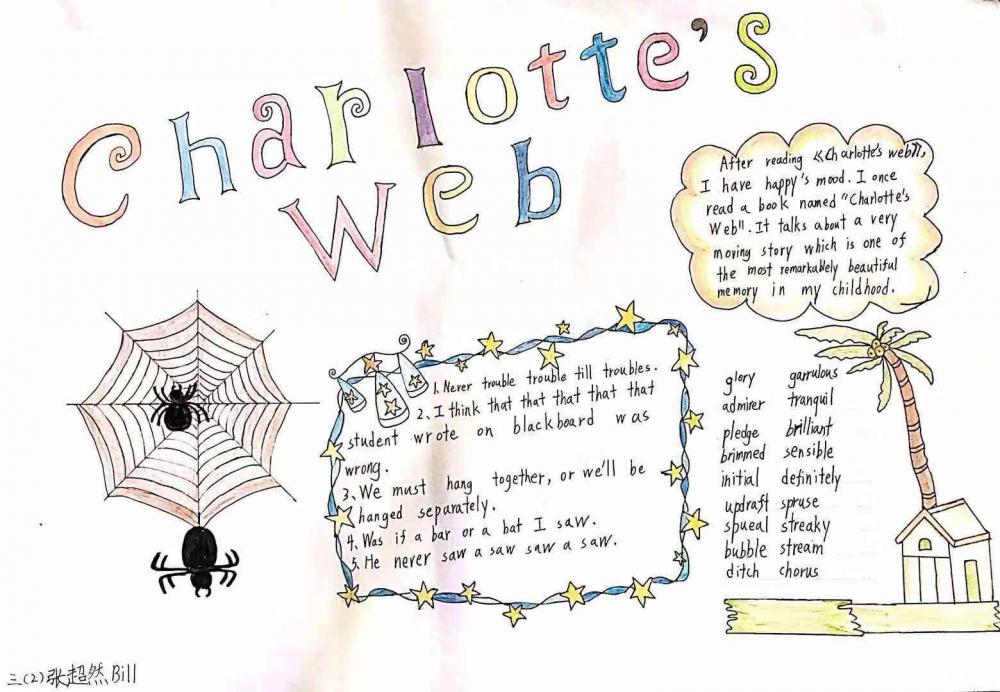 Charlotte's
Web
After reading 《Charlotte's web》,
I have happy's mood. I once
read a book named "Charlotte's
Web". It talks about a very
moving story which is one of
the most remarkablely beautiful
memory in my childhood.
1. Never trouble trouble till troubles.
2. I think that that that that that
student wrote on blackboard was
wrong.
3. We must hang together, or we'll be
hanged separately.
4. Was if a bar or a bat I saw.
5. He never saw a saw saw a saw.
glory garrulous
admirer tranquil
pledge brilliant
brimmed sensible
initial definitely
updraft spruse
spueal streaky
bubble stream
ditch chorus
三(2)张超然Bill